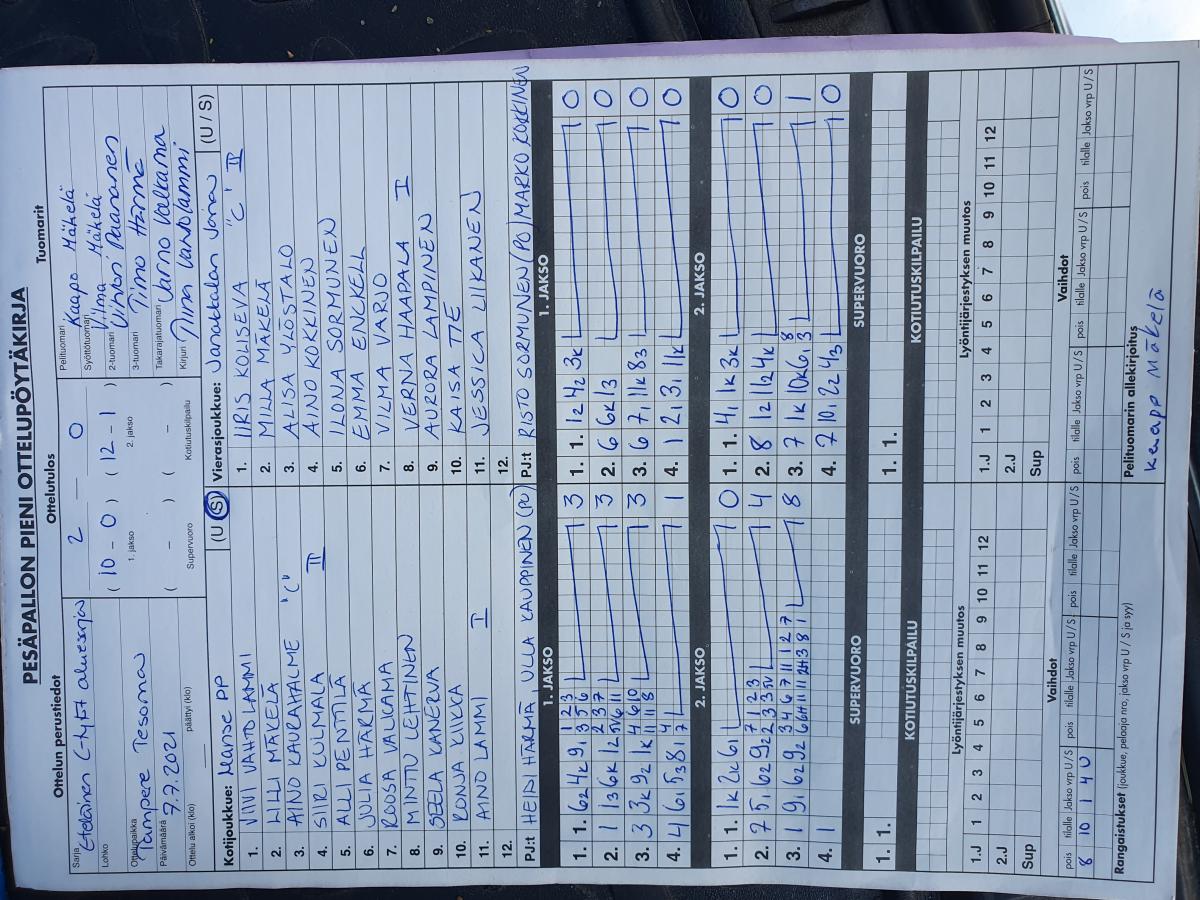 PESÄPALLON PIENI OTTELUPÖYTÄKIRJA
Ottelun perustiedot
Sarja Eteläinen C-tytöt aluesarja
Lohko
Ottelupaikka Tampere Tesoma
Päivämäärä 7.7.2021
Ottelu alkoi (klo) päättyi (klo)
Ottelutulos
2 — 0
( 10 - 0 ) ( 12 - 1 )
1. jakso 2. jakso
( - ) ( - )
Supervuoro Kotiutuskilpailu
Tuomarit
Pelituomari Kaapo Mäkelä
Syöttötuomari Vilma Mäkelä
2-tuomari Vihtori Paananen
3-tuomari Timo Härmä
Takarajatuomari Jarno Valkama
Kirjuri Tiina Vahtolammi
Kotijoukkue: Manse PP (U / S)
1. VIIVI VAHTOLAMMI
2. LILLI MÄKELÄ
3. AINO KAURAHALME "C"
4. SIIRI KULMALA II
5. ALLI PENTTILÄ
6. JULIA HÄRMÄ
7. ROOSA VALKAMA
8. MINTTU LEHTINEN
9. SEELA KANERVA
10. RONJA KIVIKKA
11. AINO LAMMI I
12.
PJ:t HEIDI HÄRMÄ ULLA KAUPPINEN (PO)
Vierasjoukkue: Janakkalan Jana (U / S)
1. IIRIS KOLISEVA "C" II
2. MILLA MÄKELÄ
3. ALISA YLÖSTALO
4. AINO KOKKINEN
5. ILONA SORMUNEN
6. EMMA ENCKELL
7. VILMA VARJO
8. VERNA HAAPALA I
9. AURORA LAMPINEN
10. KAISA TIE
11. JESSICA LIIKANEN
12.
PJ:t RISTO SORMUNEN (PO) MARKO KOKKINEN
1. JAKSO
1. 1. 62 4k 91 3
2. 1 13 6k 12 3
3. 3 3k 92 1k 3
4. 4 61 53 81 1
1. JAKSO
1. 1. 12 42 3k 0
2. 6 6k 13 0
3. 6 71 11k 83 0
4. 1 21 31 11k 0
2. JAKSO
1. 1. 1k 2k 61 0
2. 7 51 62 92 4
3. 1 91 62 92 8
4. 1
2. JAKSO
1. 1. 41 1k 3k 0
2. 8 12 112 4k 0
3. 7 1k 10k 61 1
4. 7 101 22 43 0
SUPERVUORO
1. 1.
SUPERVUORO
1. 1.
KOTIUTUSKILPAILU
KOTIUTUSKILPAILU
Lyöntijärjestyksen muutos
1.J 1 2 3 4 5 6 7 8 9 10 11 12
2.J
Sup
Lyöntijärjestyksen muutos
1.J 1 2 3 4 5 6 7 8 9 10 11 12
2.J
Sup
Vaihdot
pois tilalle Jakso vrp U / S pois tilalle Jakso vrp U / S pois tilalle Jakso vrp U / S
8 10 1 4 U
Vaihdot
pois tilalle Jakso vrp U / S pois tilalle Jakso vrp U / S pois tilalle Jakso vrp U / S
Rangaistukset (joukkue, pelaaja nro, jakso vrp U / S ja syy)
Pelituomarin allekirjoitus